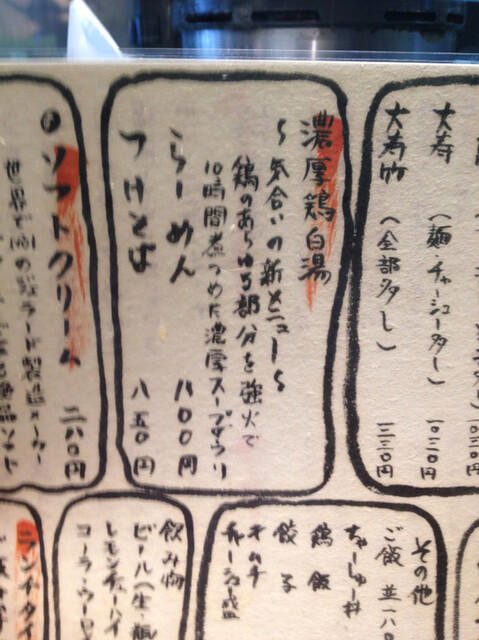 大寿 (麺・チャーシュー多し) 一〇三〇円
大寿竹 (全部多し) 一三三〇円
濃厚鶏白湯
〜気合いの新メニュー〜
鶏のあらゆる部分を強火で
10時間煮つめた濃厚スープ
らーめん 八〇〇円
つけそば 八五〇円
ソフトクリーム 二八〇円
その他
ご飯 並一八〇
ちゃーしゅー丼
鶏飯
餃子
キムチ
チャーシュー盛
飲み物
ビール(生、瓶
レモンチューハイ
コーラ・ウーロ
ランチタイ